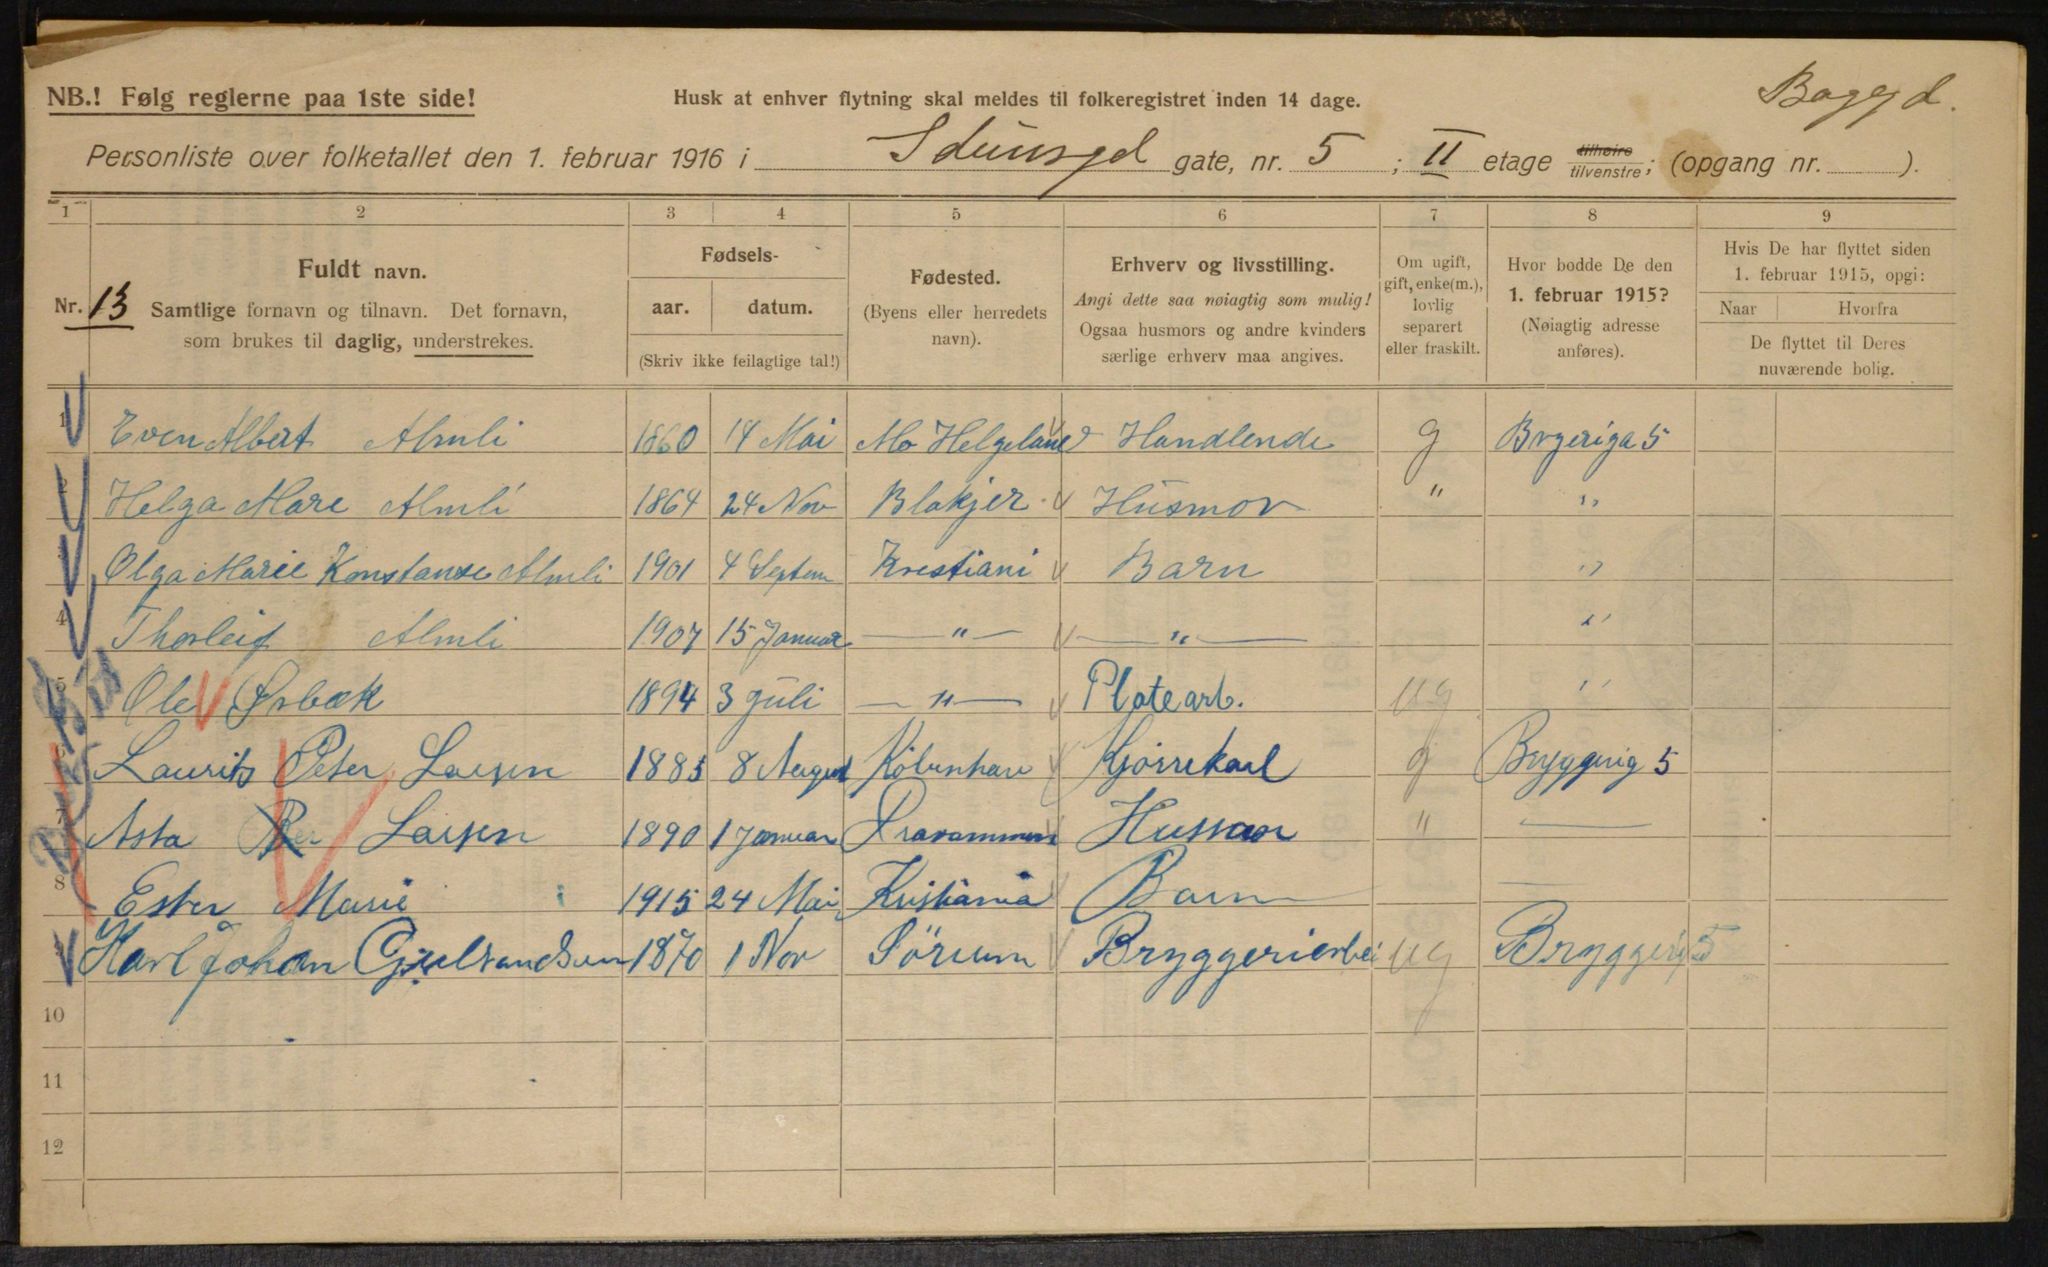 Baggd.
NB.! Følg reglerne paa 1ste side!
Husk at enhver flytning skal meldes til folkeregistret inden 14 dage.
Personliste over folketallet den 1. februar 1916 i Idunsgd gate, nr. 5 ; II etage tilhøire tilvenstre; (opgang nr. ).
1 2 3 4 5 6 7 8 9
Nr. 13
Fuldt navn.
Samtlige fornavn og tilnavn. Det fornavn,
som brukes til daglig, understrekes.
Fødsels-
aar. datum.
(Skriv ikke feilagtige tal!)
Fødested.
(Byens eller herredets
navn).
Erhverv og livsstilling.
Angi dette saa nøiagtig som mulig!
Ogsaa husmors og andre kvinders
særlige erhverv maa angives.
Om ugift,
gift, enke(m.),
lovlig
separert
eller fraskilt.
Hvor bodde De den
1. februar 1915?
(Nøiagtig adresse
anføres).
Hvis De har flyttet siden
1. februar 1915, opgi:
Naar Hvorfra
De flyttet til Deres
nuværende bolig.
1 Even Albert Almli 1860 14 Mai Mo Helgeland Handlende g Brgeriga 5
Helga Mare Almli 1864 24 Nov Blakjer Husmor " "
Olga Marie Konstanse Almli 1901 4 Septem Krestiani Barn "
4 Thorleif Almli 1907 15 Januar " " "
5 Ole Ørbæk 1894 3 Juli " Platearb. ug "
6 Laurits Peter Larsen 1885 8 August Købunhavn Kjørrekarl g Bryggerig 5
7 Asta Larsen 1890 1 Januar Dravammen Hussmor "
8 Ester Marie 1915 24 Mai Kristiania Barn
Karl Johan 1870 1 Nov Sörum Bryggeriarbei ug Bryggerig 5
10
11
12